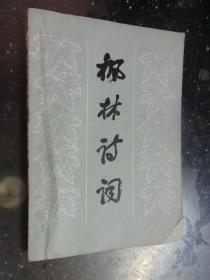 枫林诗词